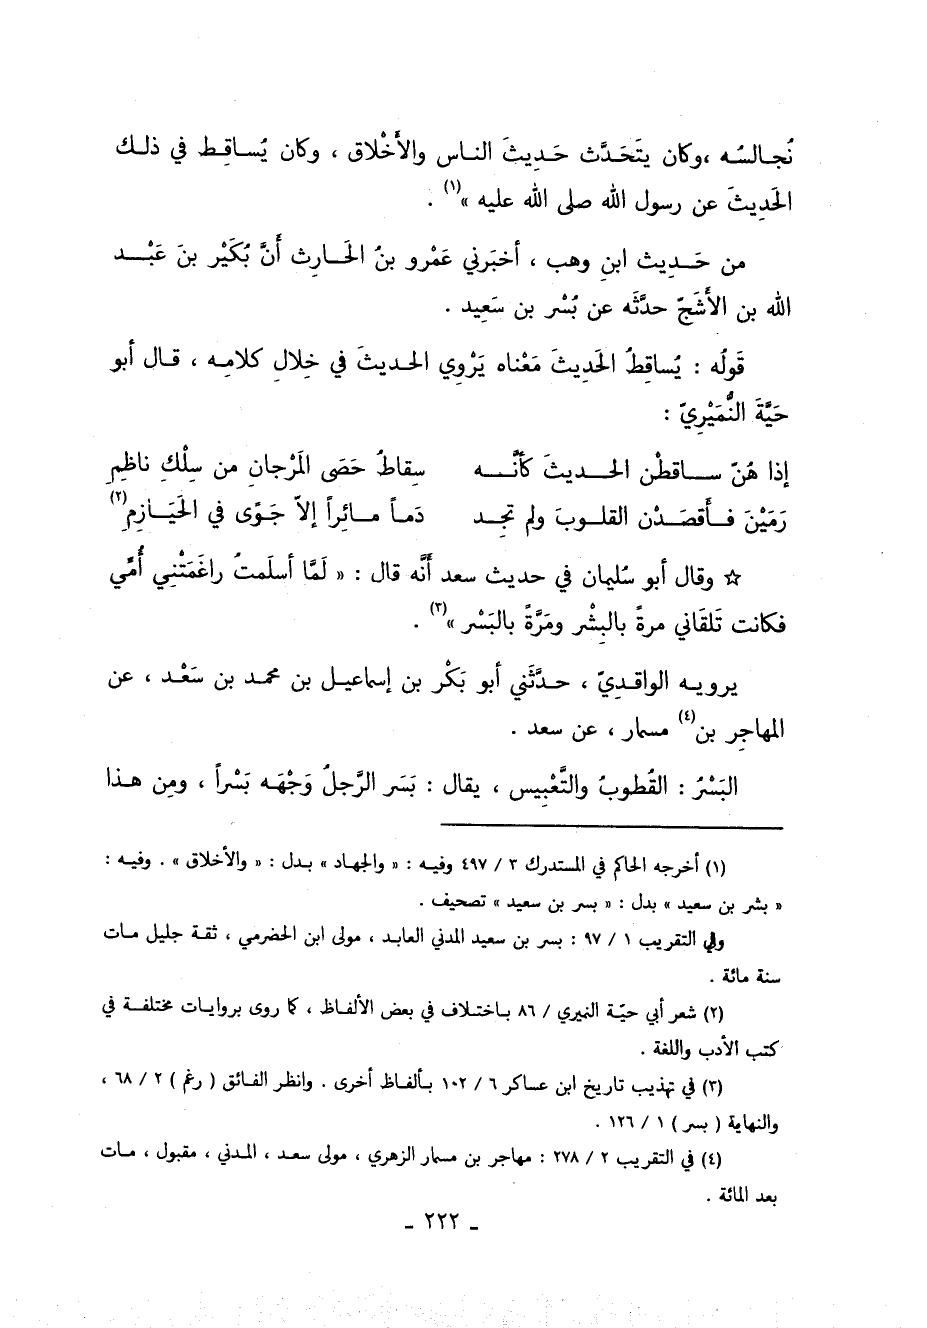 نُجالسُه ،وكان يتَحَدَّث حَدِيثَ الناس والأَخْلاق ، وكان يُساقِط في ذلك
الحَدِيثَ عن رسول الله صلى الله عليه »(١) .
من حَدِيث ابنِ وهب ، أخبَرني عَمْرو بنُ الحَارِث أَنَّ بُكَيْر بنَ عَبْد
الله بن الأَشَجّ حدَّثَه عن بُسْر بن سَعِيد .
قَولُه : يُساقِطُ الحَدِيثَ مَعْناه يَرْوِي الحديثَ في خِلالِ كلامِه ، قال أبو
حَيَّةَ النُّمَيْرِيّ :
إذا هُنّ ساقطْن الحديثَ كأنَّه سِقاطُ حَصَى المَرْجانِ من سِلْكِ ناظِمِ
رَمَيْنَ فأَقصَدْن القلوبَ ولم تجِد دَماً مائِراً إلاّ جَوًى في الحَيَازِمِ(٢)
☆ وقال أبو سُليمان في حديث سعد أنَّه قال : « لَمَّا أسلَمتُ راغَمَتْني أُمِّي
فكانت تَلقَاني مرةً بالبِشْر ومَرَّةً بالبَسْر »(٣) .
يرويه الواقديّ ، حدَّثَني أبو بَكْر بن إسماعيل بن محمد بن سَعْد ، عن
المهاجِر بن(٤) مسمار ، عن سعد .
البَسْرُ : القُطوبُ والتَّعْبِيس ، يقال : بَسَر الرَّجلُ وَجْهَه بَسْراً ، ومِن هذا
(١) أخرجه الحاكم في المستدرك ٣ / ٤٩٧ وفيه : « والجهاد » بدل : « والأخلاق » . وفيه :
« بشر بن سعيد » بدل : « بسر بن سعيد » تصحيف .
وفي التقريب ١ / ٩٧ : بسر بن سعيد المدني العابد ، مولى ابن الحضرمي ، ثقة جليل مات
سنة مائة .
(٢) شعر أبي حيّة النميري / ٨٦ باختلاف في بعض الألفاظ ، كما روى بروايات مختلفة في
كتب الأدب واللغة .
(٣) في تهذيب تاريخ ابن عساكر ٦ / ١٠٢ بألفاظ أخرى . وانظر الفائق ( رغم ) ٢ / ٦٨ ،
والنهاية ( بسر ) ١ / ١٢٦ .
(٤) في التقريب ٢ / ٢٧٨ : مهاجر بن مسمار الزهري ، مولى سعد ، المدني ، مقبول ، مات
بعد المائة .
ـ ٢٢٢ ـ